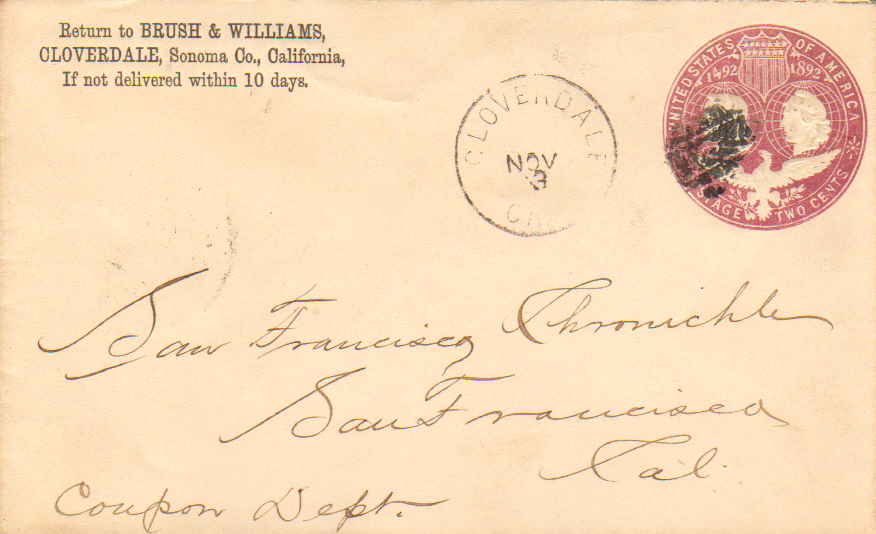 Return to BRUSH & WILLIAMS,
CLOVERDALE, Sonoma Co., California,
If not delivered within 10 days.
CLOVERDALE
NOV
CAL
UNITED STATES OF AMERICA
1492 1892
POSTAGE TWO CENTS
San Francisco Chronickle
San Francisco
Cal.
Coupon Dept.